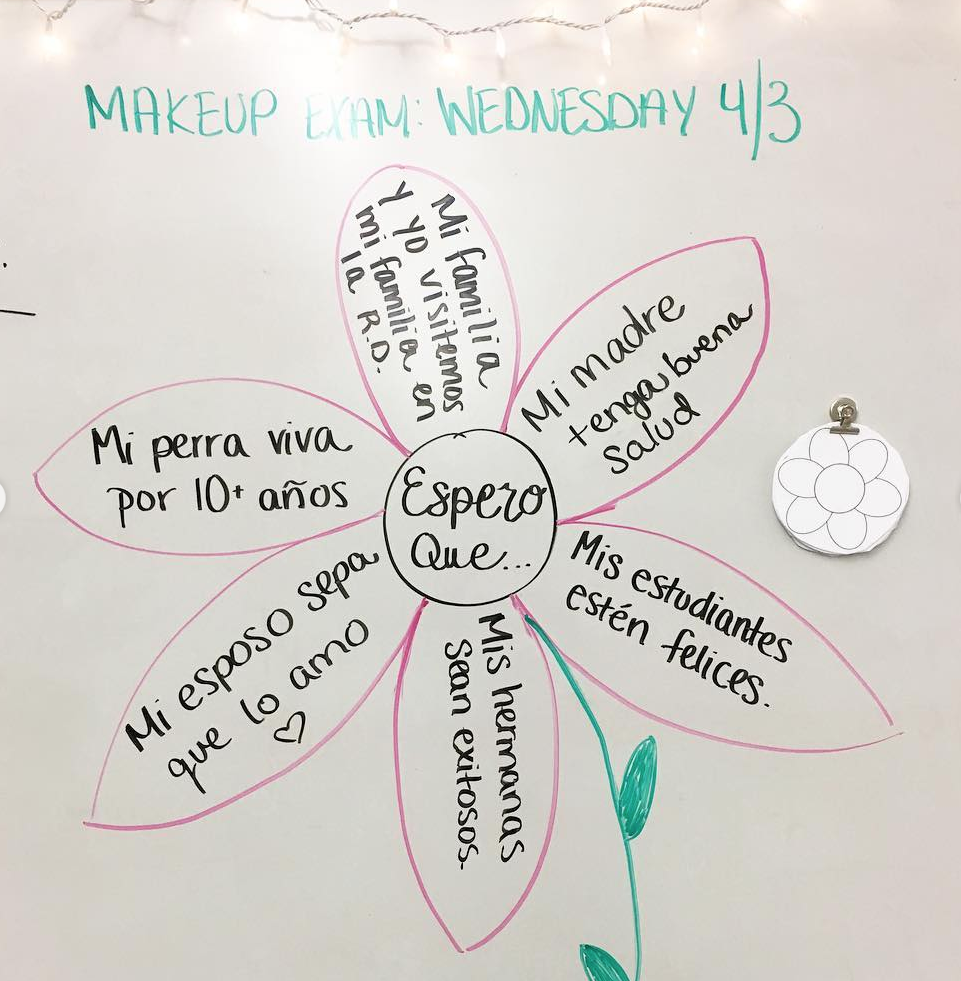 MAKEUP EXAM: WEDNESDAY 4/3
Mi familia
y yo visitemos
mi familia en
la R.D.
Mi madre
tenga buena
salud
Mi perra viva
por 10+ años
Espero
Que...
Mis estudiantes
estén felices.
Mi esposo sepa
que lo amo
Mis hermanas
sean exitosos.